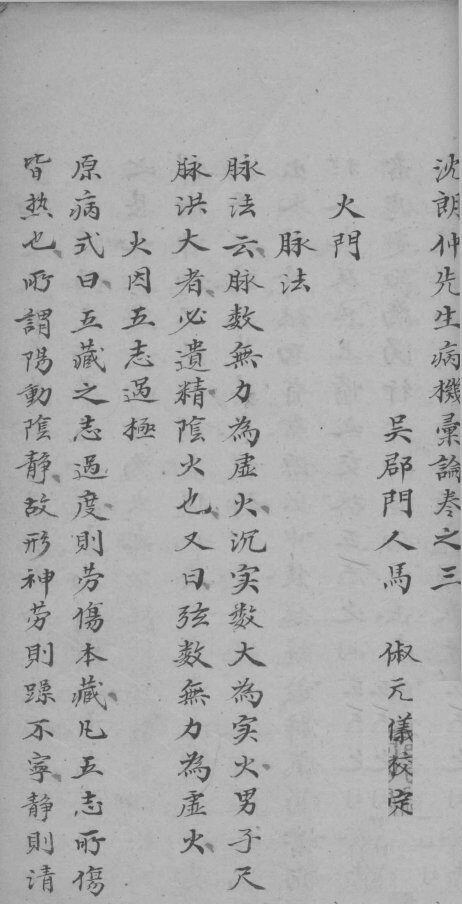 沈朗仲先生病機彙論卷之三
吳郡門人馬 俶元儀校定
火門
脉法
脉法云脉數無力為虛火沉实數大為实火男子尺
脉洪大者必遺精陰火也又曰弦數無力為虛火
火因五志過極
原病式曰五藏之志過度則劳傷本藏凡五志所傷
皆热也所謂陽動陰静故形神劳則躁不寧静則清